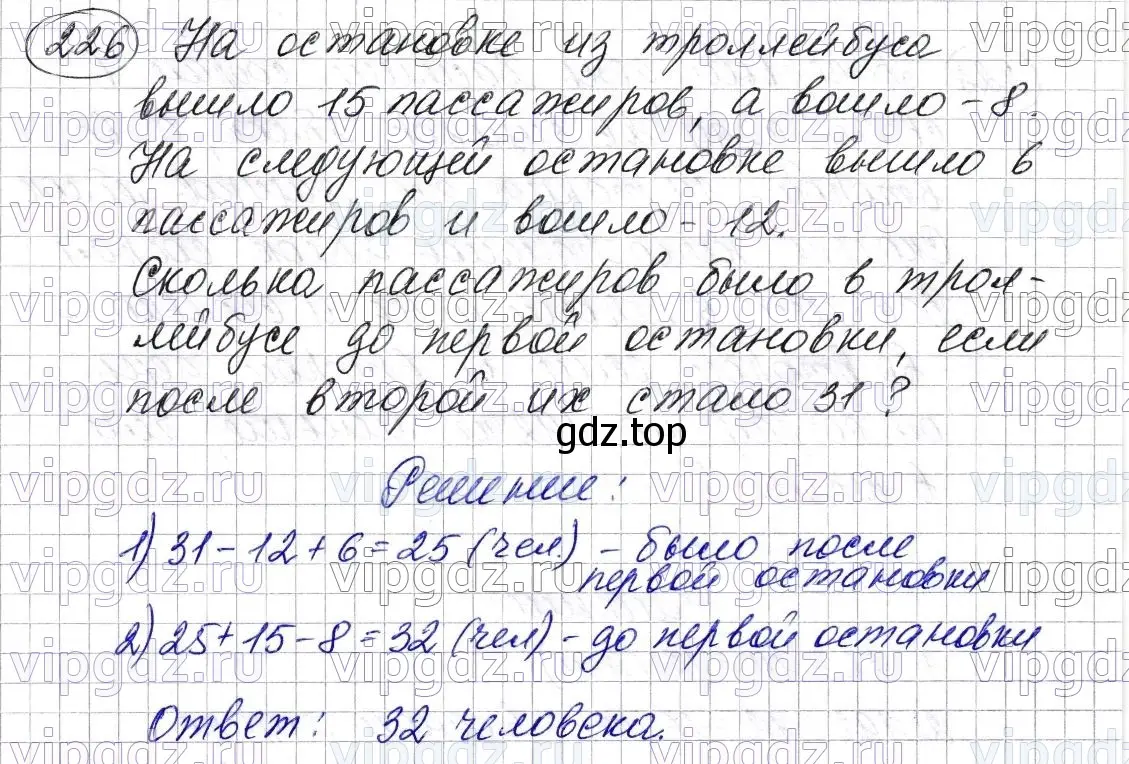 226 На остановке из троллейбуса
вышло 15 пассажиров, а вошло - 8.
На следующей остановке вышло 6
пассажиров и вошло - 12.
Сколька пассажиров было в трол-
лейбусе до первой остановки, если
после второй их стало 31?
gdz.top
Решение:
1) 31 - 12 + 6 = 25 (чел) - было после
первой остановки
2) 25 + 15 - 8 = 32 (чел) - до первой остановки
Ответ: 32 человека.
vipgdz.ru